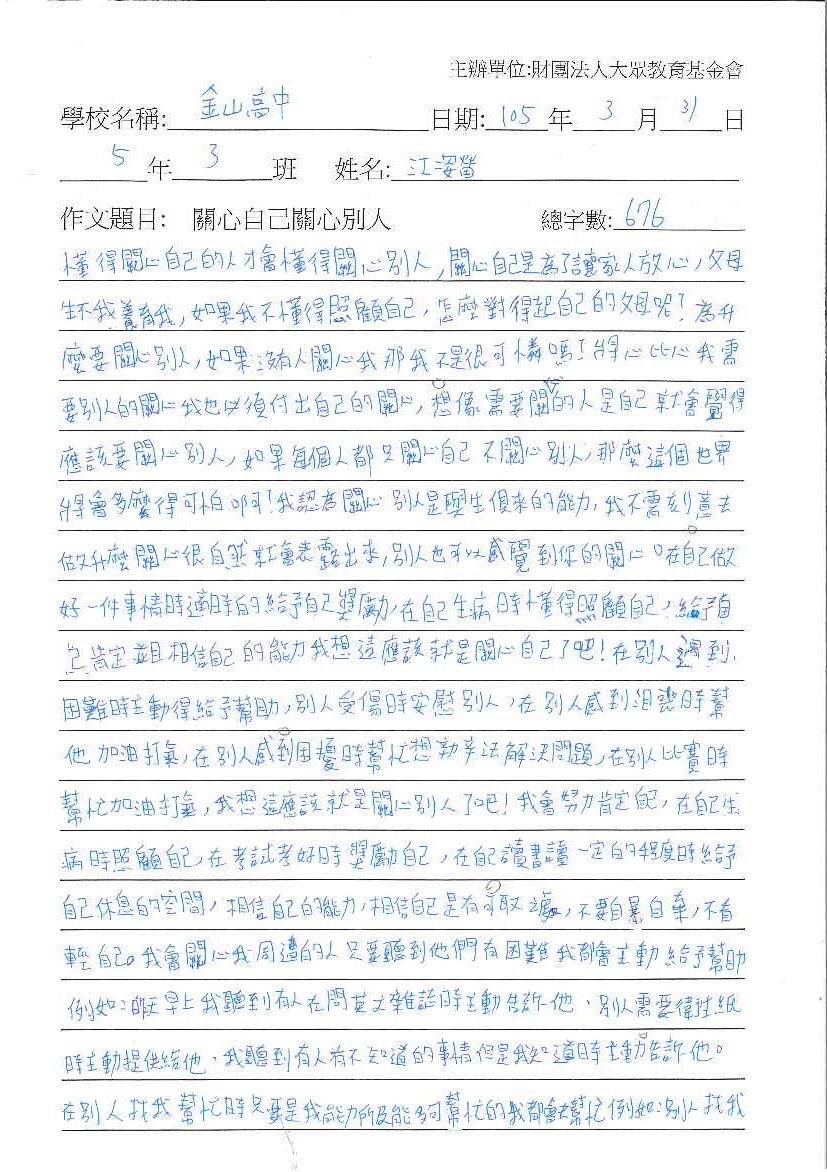 主辦單位:財團法人大眾教育基金會
學校名稱: 金山高中 日期: 105 年 3 月 31 日
5 年 3 班 姓名: 江姿螢
作文題目: 關心自己關心別人 總字數: 676
懂得關心自己的人才會懂得關心別人,關心自己是為了讓家人放心,父母
生我養育我,如果我不懂得照顧自己,怎麼對得起自己的父母呢?為什
麼要關心別人,如果沒有人關心我那我不是很可憐嗎!將心比心我需
要別人的關心我也必須付出自己的關心,想像需要關心的人是自己就會覺得
應該要關心別人,如果每個人都只關心自己不關心別人,那麼這個世界
將會多麼得可怕啊!我認為關心別人是與生俱來的能力,我不需刻意去
做什麼關心很自然就會表露出來,別人也可以感覺到你的關心。在自己做
好一件事情時適時的給予自己獎勵,在自己生病時懂得照顧自己,給予自
己肯定並且相信自己的能力我想這應該就是關心自己了吧!在別人遇到
困難時主動得給予幫助,別人受傷時安慰別人,在別人感到沮喪時幫
他加油打氣,在別人感到困擾時幫忙想辦法解決問題,在別人比賽時
幫忙加油打氣,我想這應該就是關心別人了吧!我會努力肯定自己,在自己生
病時照顧自己,在考試考好時獎勵自己,在自己讀書讀一定的程度時給予
自己休息的空間,相信自己的能力,相信自己是有可取之處,不要自暴自棄,不看
輕自己。我會關心我周遭的人只要聽到他們有困難我都會主動給予幫助
例如:昨天早上我聽到有人在問英文雜誌時主動告訴他、別人需要衛生紙
時主動提供給他、我聽到有人有不知道的事情但是我知道時主動告訴他。
在別人找我幫忙時只要是我能力所及能夠幫忙的我都會去幫忙例如:別人找我